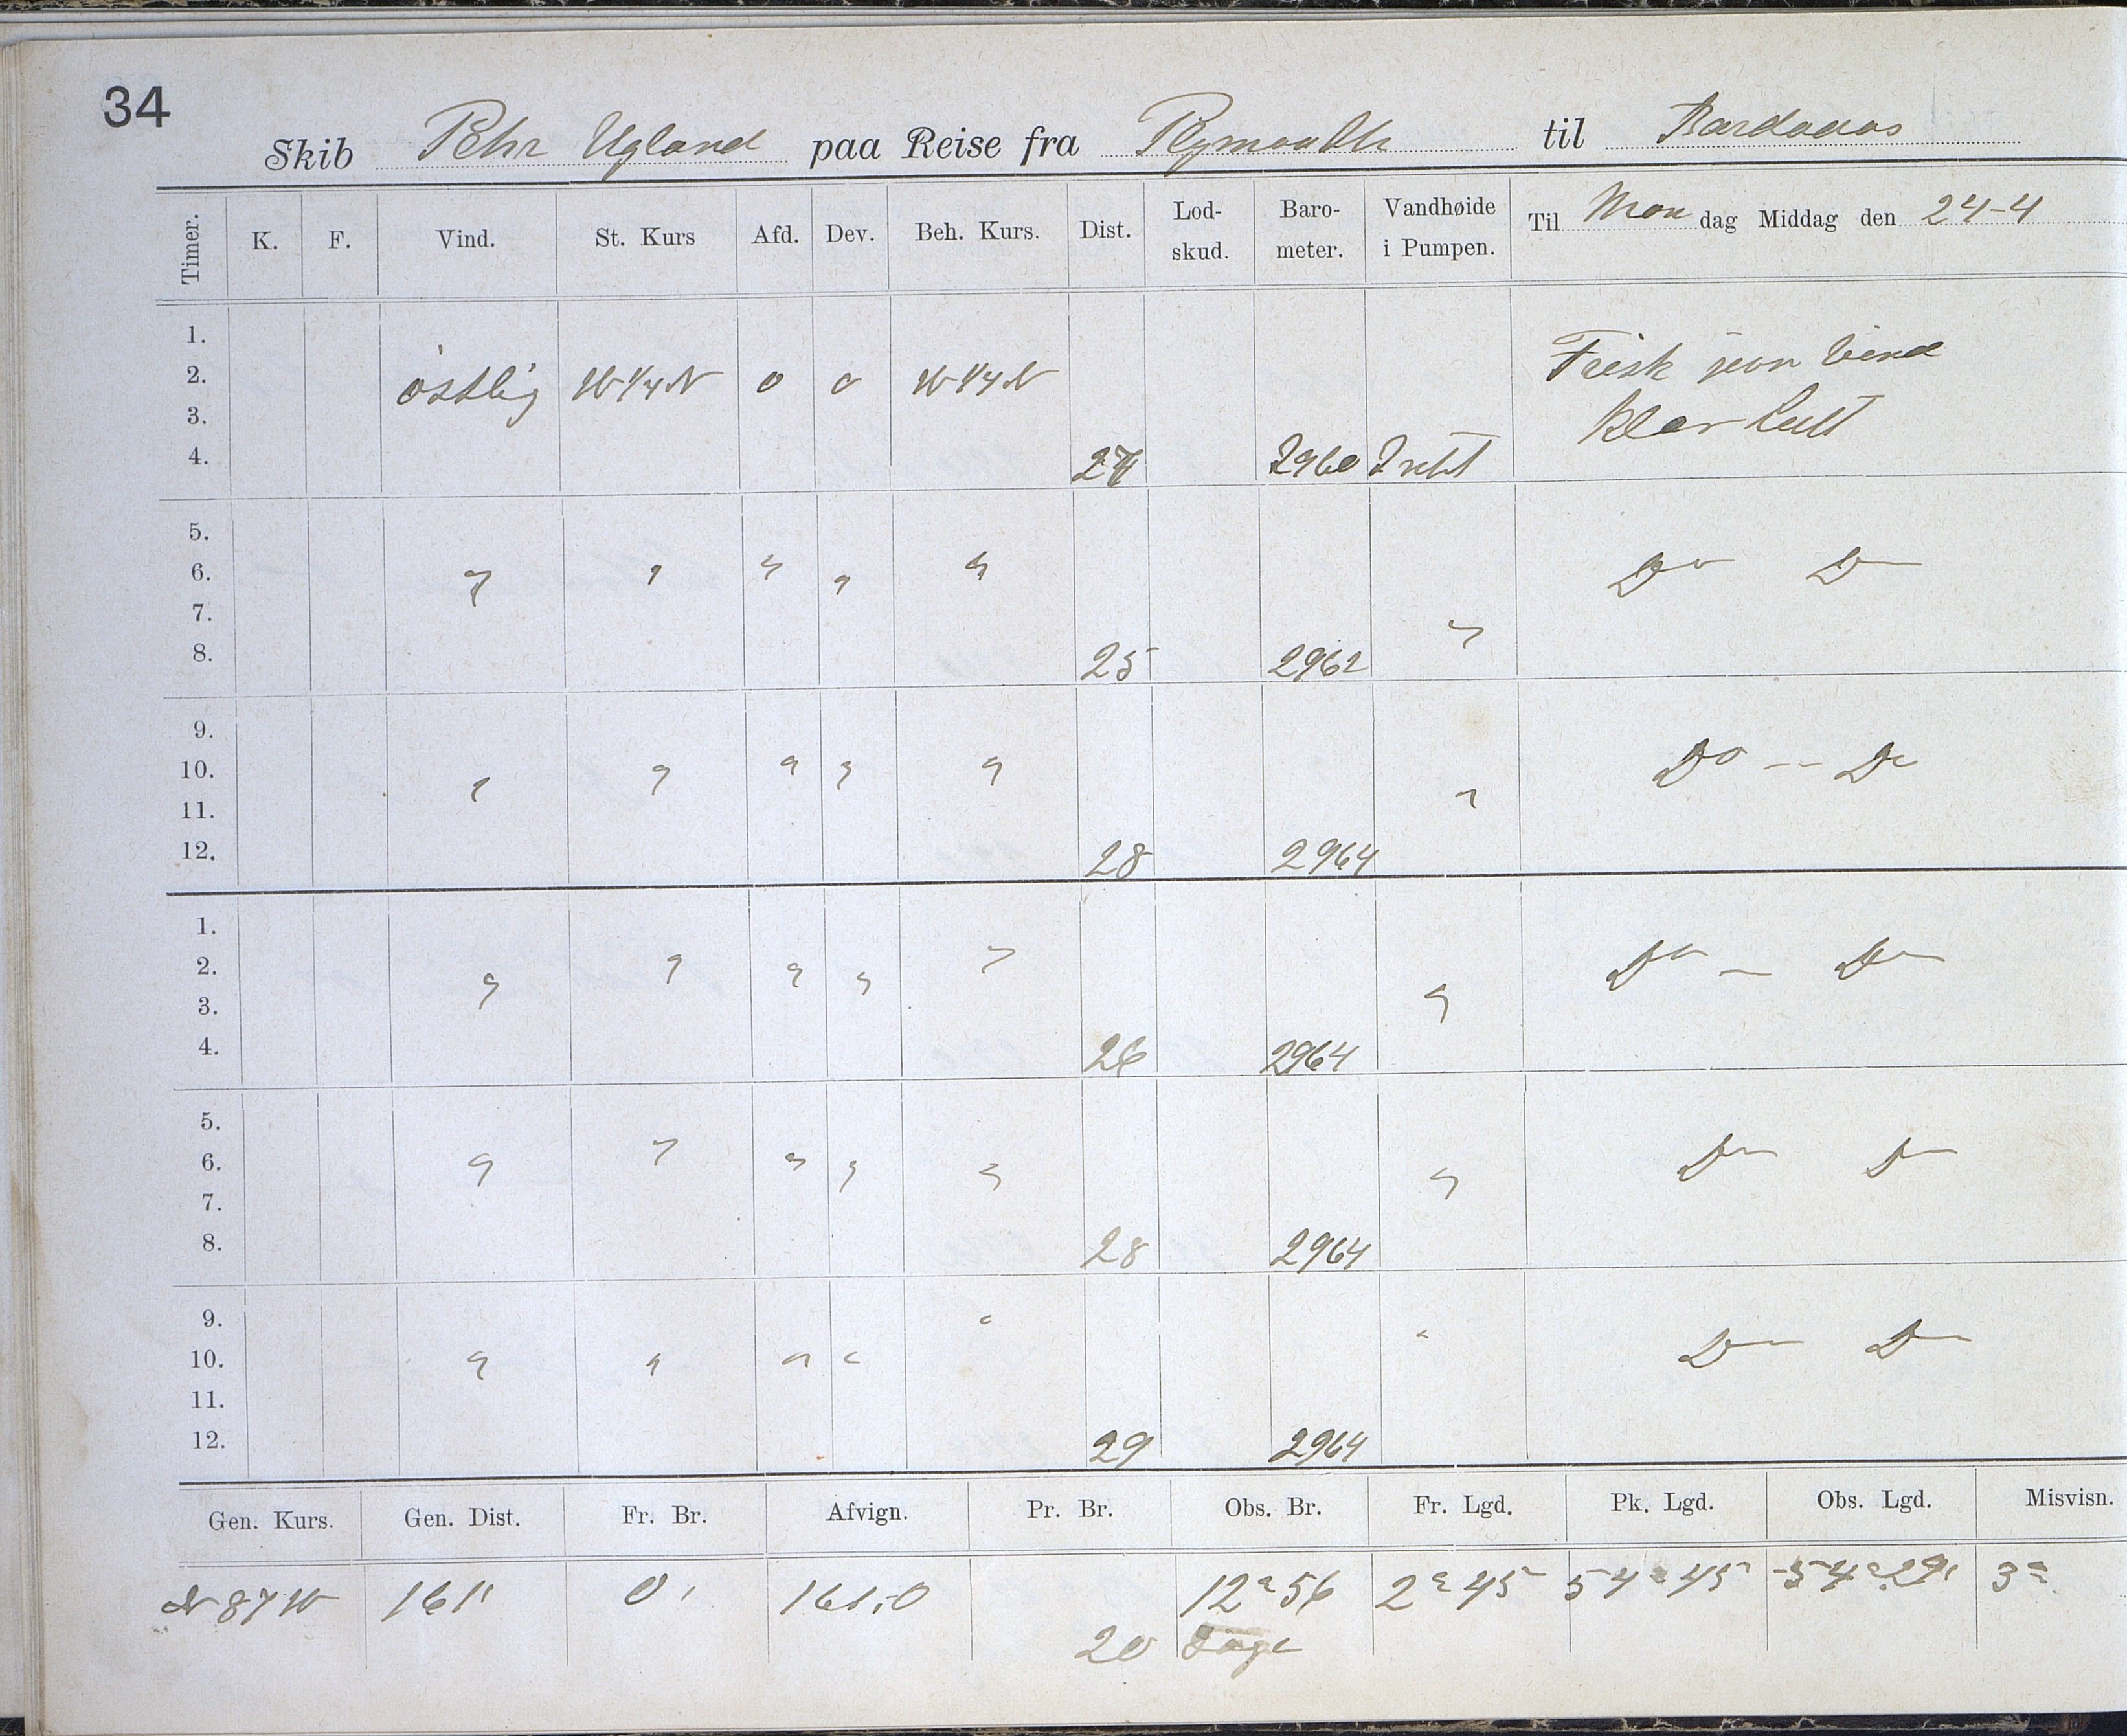 34
Skib Pehr Ugland paa Reise fra Plymouth til Bardados
Timer. K. F. Vind. St. Kurs Afd. Dev. Beh. Kurs. Dist. Lod-skud. Baro-meter. Vandhøide i Pumpen. Til Mon dag Middag den 24-4
1.
2. östlig W 1/4 N 0 0 W 1/4 N Frisk jevn Vind
3. Klar Luft
4. 27 2960 Intet
5.
6. " " " " " Do Do
7. "
8. 25 2962
9.
10. " " " " " " Do -- Do
11.
12. 28 2964
1.
2. " " " " " Do — Do
3. "
4. 26 2964
5.
6. " " " " " " Do Do
7.
8. 28 2964
9. "
10. " " " " " Do Do
11.
12. 29 2964
Gen. Kurs. Gen. Dist. Fr. Br. Afvign. Pr. Br. Obs. Br. Fr. Lgd. Pk. Lgd. Obs. Lgd. Misvisn.
N 87 W 161' 0' 161,0 12° 56 2° 45 54° 45 54° 29' 3°
20 Dage